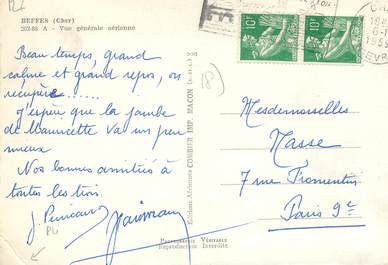 BEFFES (Cher)
202-86 A - Vue générale aérienne
Beau temps, grand
calme et grand repos, on
récupère......
J'espère que la jambe
de Mauricette va un peu
mieux
Nos bonnes amitiés à
toutes les trois.
PLi
Editions Aériennes COMBIER IMP. MACON
Photographie Véritable
Reproduction Interdite
10F
10F
18
Mesdemoiselles
Masse
7 rue Fromentin
Paris 9e